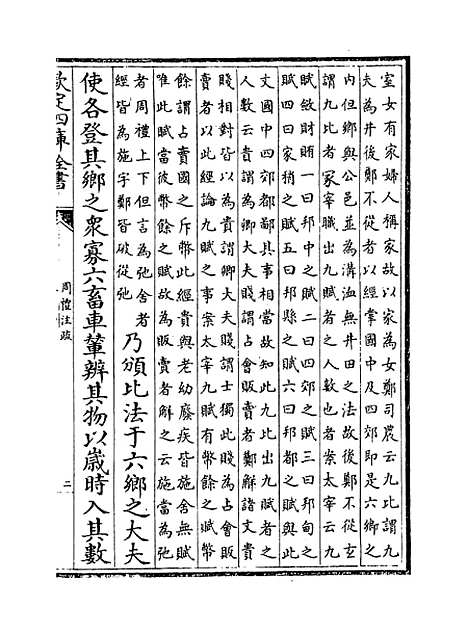 室女有家婦人稱家故以家為女鄭司農云九比謂九
夫為井後鄭不從者以經掌國中及四郊即是六鄉之
内但鄉與公邑並為溝洫無井田之法故後鄭不從玄
謂九比者冢宰職出九賦者之人數也者案太宰云九
賦斂財賄一曰邦中之賦二曰四郊之賦三曰邦甸之
賦四曰家稍之賦五曰邦縣之賦六曰邦都之賦與此
文國中四郊都鄙其事相當故知此九比出九賦者之
人數云貴謂為卿大夫賤謂占會販賣者鄭解諸文貴
賤相對皆以為貴謂卿大夫賤謂士獨此賤為占會販
賣者以此經論九賦之事案太宰九賦有幣餘之賦幣
餘謂占賣國之斥幣此經貴與老幼廢疾皆施舍無賦
唯此賤當彼幣餘之賦故為販賣者解之云施當為弛
者周禮上下但言為弛舍者
經皆為施字鄭皆破從弛
乃頒比法于六鄉之大夫
使各登其鄉之衆寡六畜車輦辨其物以歲時入其數
欽定四庫全書
周禮注疏
二